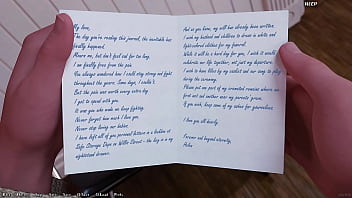 My love,
The day you're reading this journal, the inevitable has
finally happened.
Mourn me, but don't feel sad for too long.
I am finally free from the pain.
You always wondered how I could stay strong and fight
throughout the years. Some days, I couldn't.
But the pain was worth every extra day
I got to spend with you.
It was you who made me keep fighting.
Never forget how much I love you.
Never stop loving our babies.
I have left all of you personal letters in a
Safe Storage Depo on Willis Street - the key is in my
nightstand drawer.
And as you know, my will has already been written.
I wish my husband and children to dress in white and
light-colored clothes for my funeral.
While it will be a hard day for you, I wish it would
celebrate our life together, not just my departure.
I wish to have lilies by my casket and our song to play
during the ceremony.
Please put one part of my cremated remains where we
first met and another near my parents' grave.
If you wish, keep some of my ashes for yourselves.
I love you all dearly.
Forever and beyond eternity,
Helen